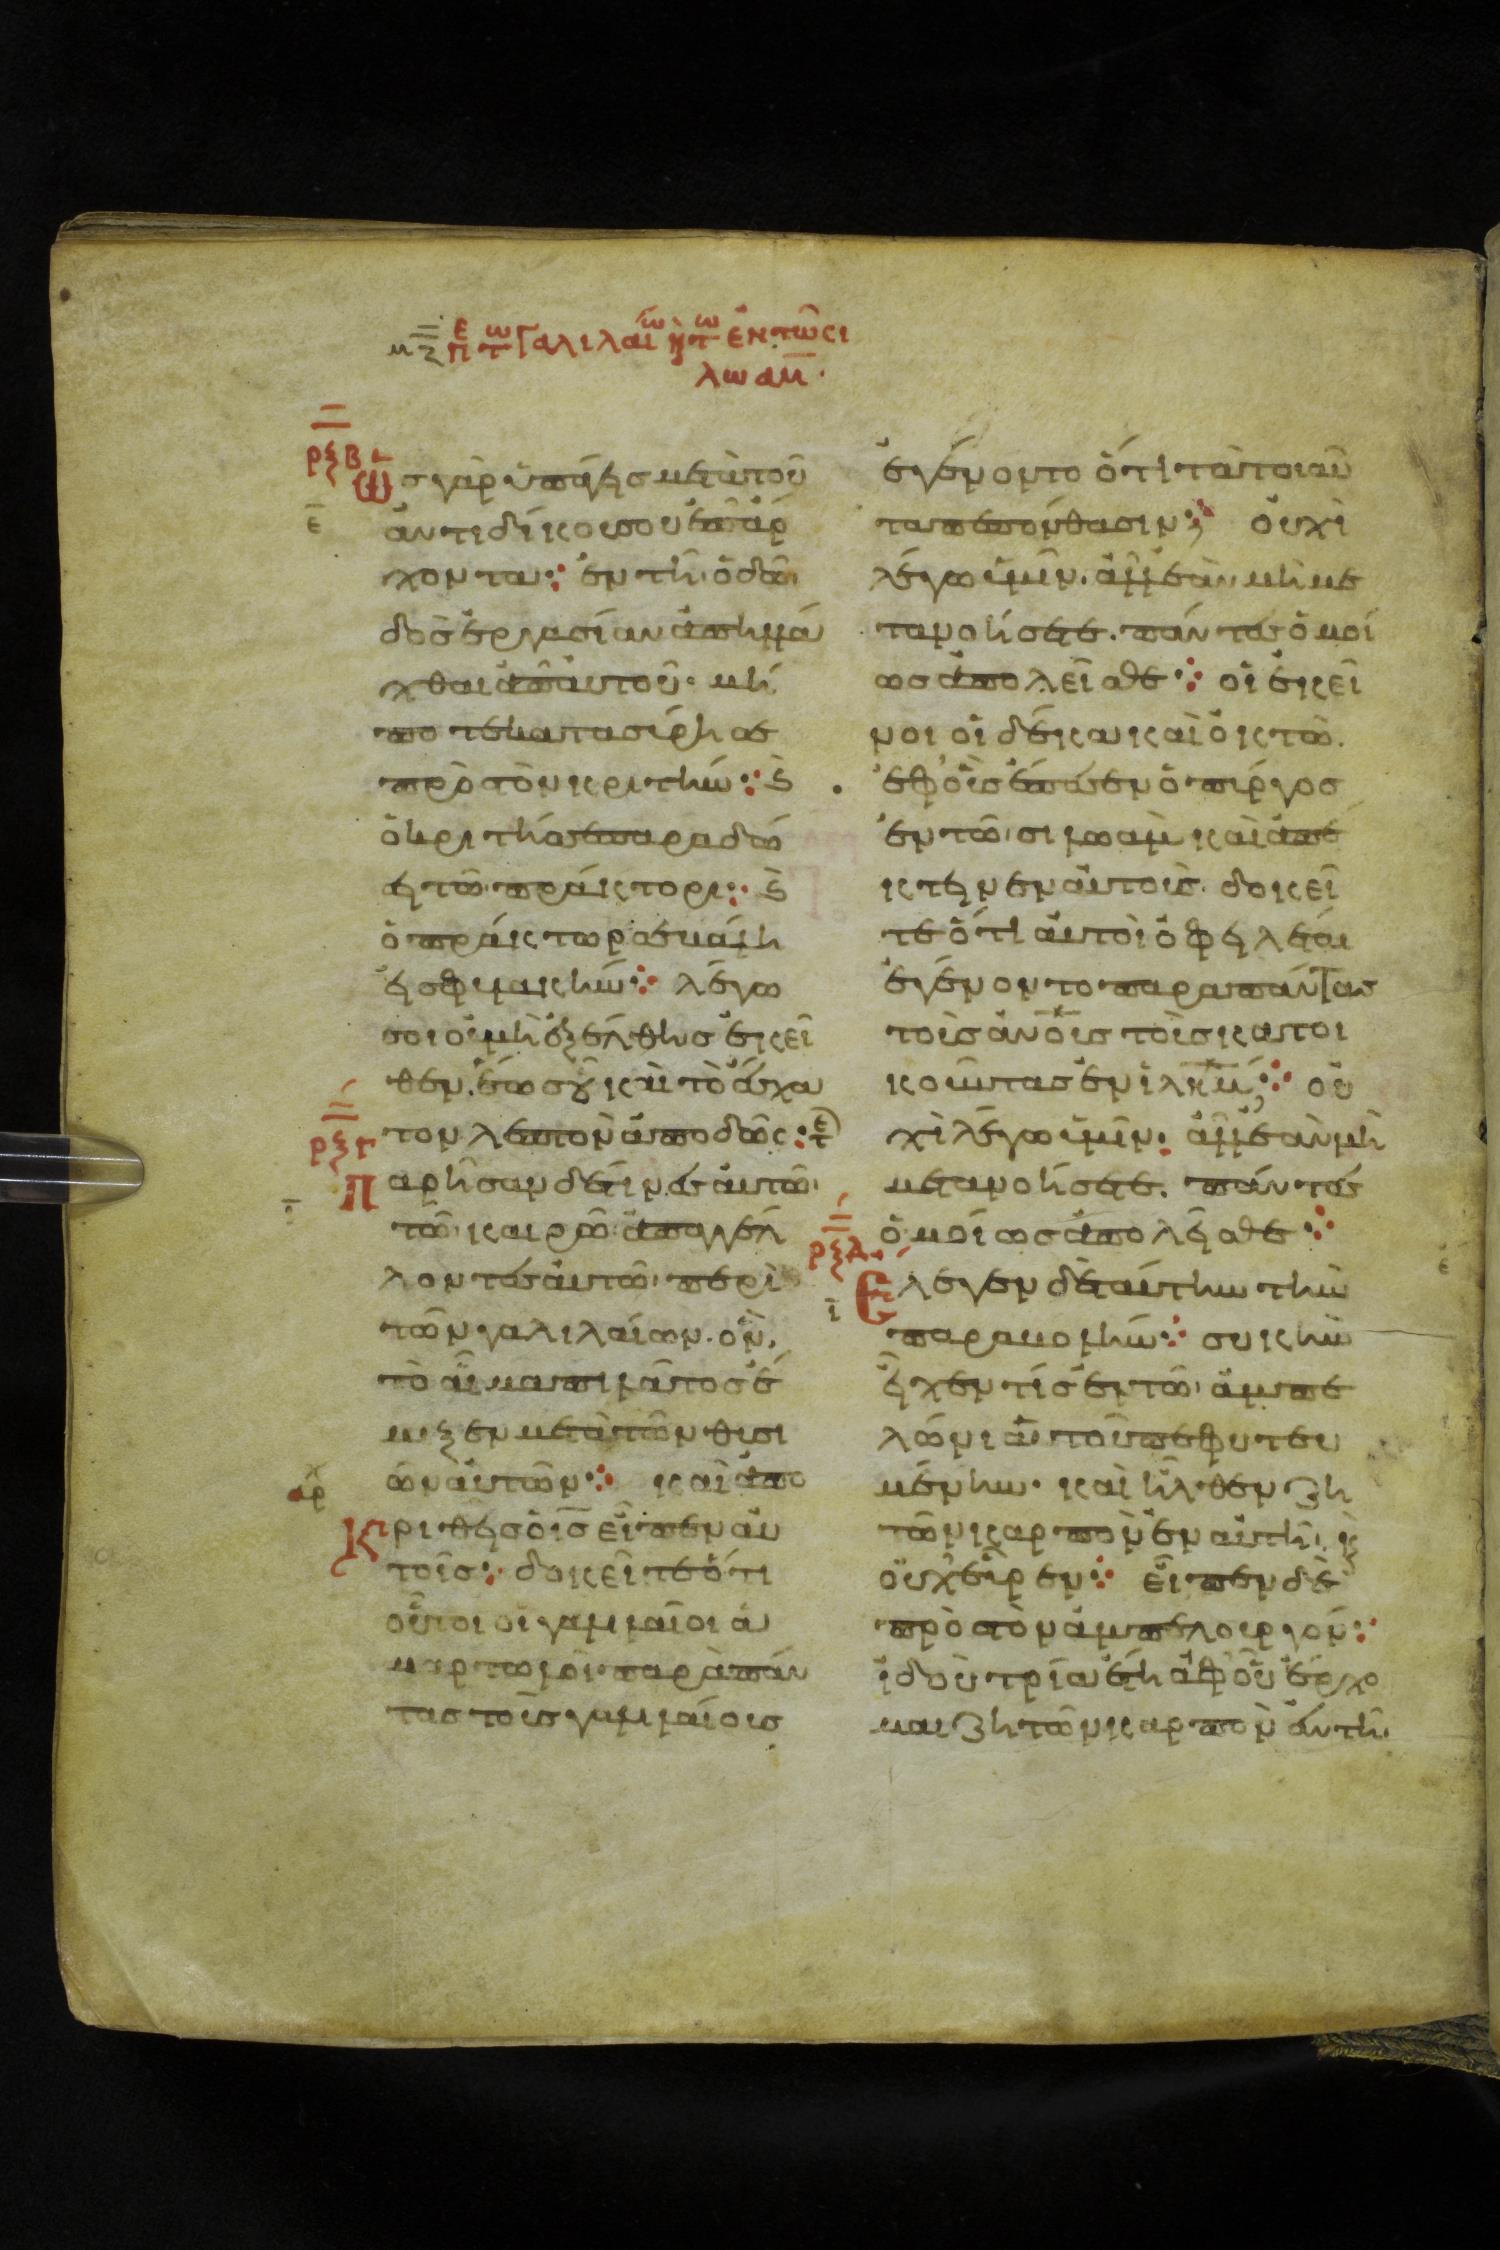 μζ πε τω Γαλιλαίω κ τω ἐν τῶ Σι
λωάμ
ρξβ
Ὡς γὰρ ὑπάγεις μετὰ τοῦ
ε
ἀντιδίκου σου ἐπ' ἄρ
χοντα· ἐν τῆ ὁδῶ
δὸς ἐργασίαν ἀπηλλά
χθαι ἀπ' αὐτοῦ· μή
ποτε κατασύρη σε
πρὸς τὸν κριτήν· κ
ὁ κριτής σε παραδώ
ει τῶ πράκτορι· κ
ὁ πράκτωρ σε βάλη
εἰς φυλακήν· λέγω
σοι οὐ μὴ ἐξέλθης ἐκεῖ
θεν. ἕως οὗ καὶ τὸ ἔσχα
τον λεπτὸν ἀποδῶς· τε
ρξγ
Παρῆσαν δέ τινες αὐτῶ
ι
τῶ καιρῶ ἀπαγγέλ
λοντες αὐτῶ περὶ
τῶν γαλιλαίων. ὧν
τὸ αἷμα πιλᾶτος ἔ
μιξεν μετὰ τῶν θυσι
ῶν αὐτῶν· καὶ ἀπο
αρχ
Κριθεὶς ὁ ις εἶπεν αὐ
τοῖς· δοκεῖτε ὅτι
οὗτοι οἱ γαλιλαῖοι ἁ
μαρτωλοὶ παρὰ πάν
τας τοὺς γαλιλαίους
ἐγένοντο ὅτι τὰ τοιαῦ
τα πεπόνθασιν; οὐχὶ
λέγω ὑμῖν. ἀλλ' ἐὰν μὴ με
τανοήσετε. πάντες ὁμοί
ως ἀπολεῖσθε· οἱ ἐκεῖ
νοι οἱ δέκα καὶ ὀκτὼ.
ἐφ' οἷς ἔπεσεν ὁ πύργος
ἐν τῶ σιλωὰμ καὶ ἀπέ
κτεινεν αὐτοὺς. δοκεῖ
τε ὅτι αὐτοὶ ὀφειλέται
ἐγένοντο παρὰ πάντας
τοὺς ἀνους τοὺς κατοι
κοῦντας ἐν ἱλημ; οὐ
χὶ λέγω ὑμῖν. ἀλλ' ἐὰν μὴ
μετανοήσετε. πάντες
ὁμοίως ἀπολεῖσθε·
ρξδ
Ἔλεγεν δὲ ταύτην τὴν
ι
παραβολήν· συκὴν
εἶχέν τις ἐν τῶ ἀμπε
λῶνι αὐτοῦ πεφυτευ
μένην. καὶ ἦλθεν ζη
τῶν καρπὸν ἐν αὐτῆ κ
οὐχ' εὗρεν· εἶπεν δὲ
πρὸς τὸν ἀμπελουργόν·
ἰδοὺ τρία ἔτη ἀφ' οὗ ἔρχο
μαι ζητῶν καρπὸν ἐν τῆ